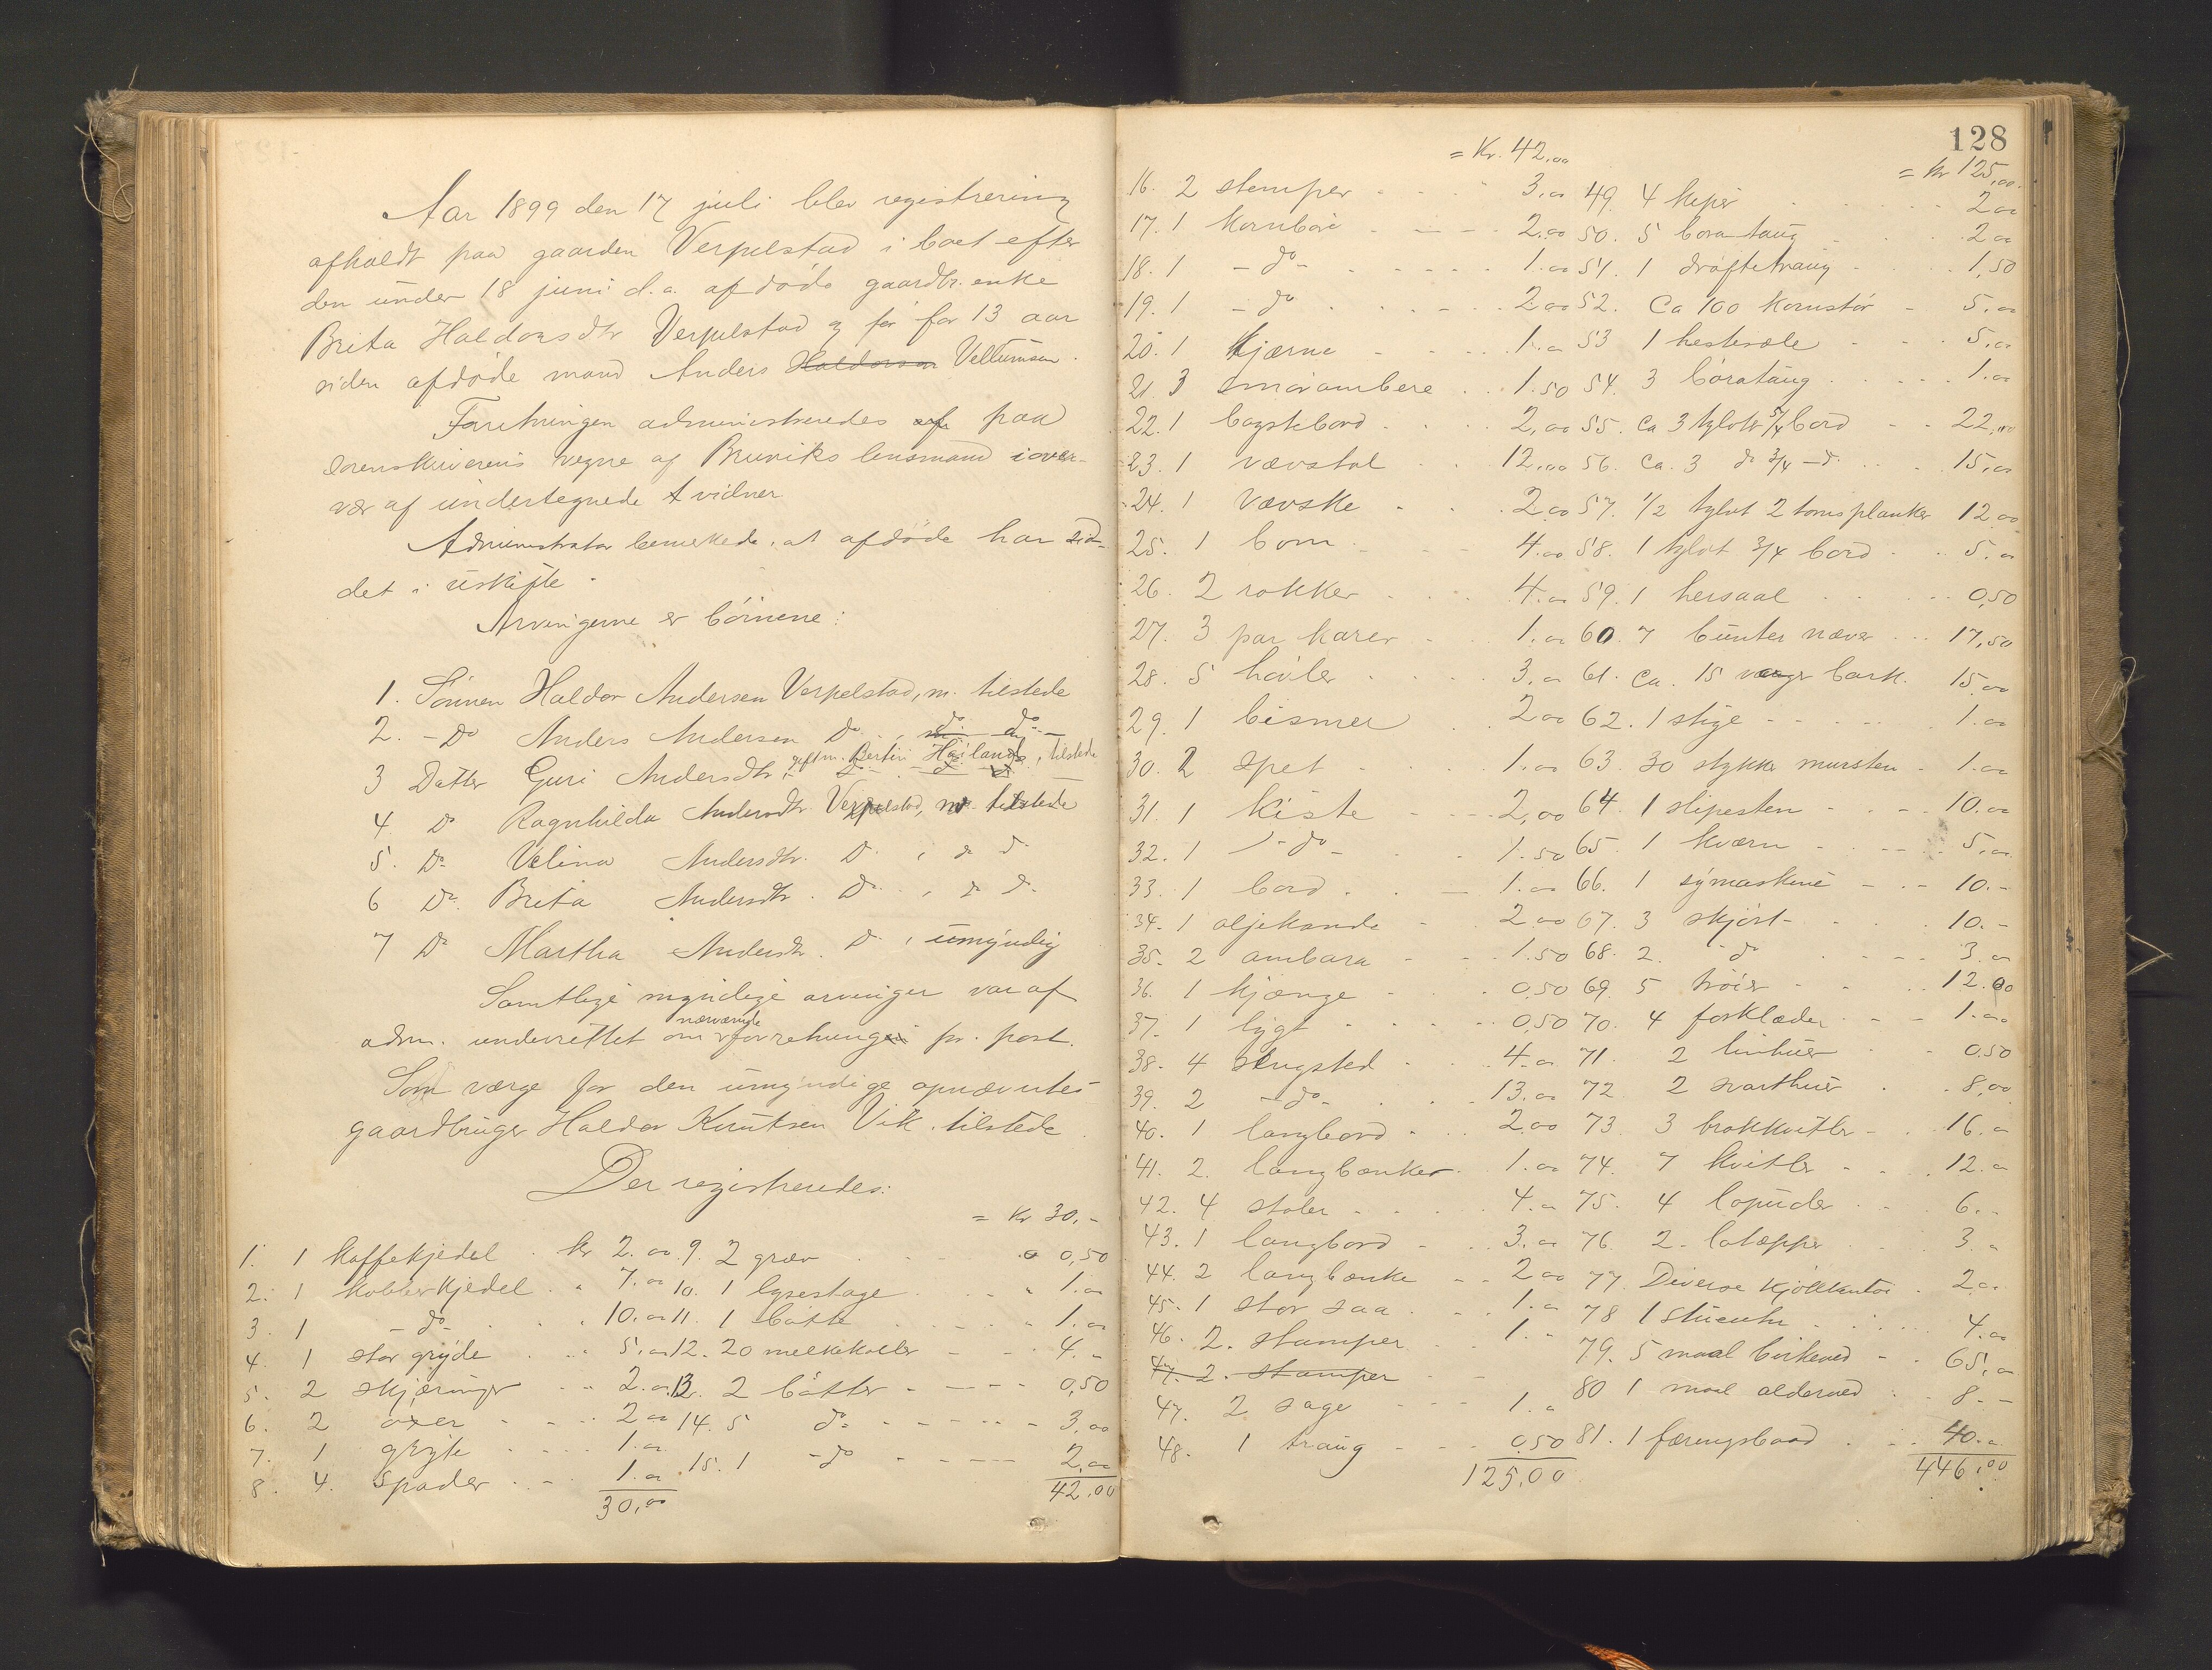 Aar 1899 den 17 juli blev registrering
afholdt paa gaarden Verpelstad i boet efter
den under 18 juni d.a. afdøde gaardbr. enke
Brita Haldorsdtr Verpelstad og før for 13 aar
siden afdøde mand Anders Haldorsen Vellumsen.
Forretningen administreredes af paa
sorenskriverens vegne af Bruviks lensmand i over-
vær af undertegnede 2 vidner
Administrator bemerkede, at afdøde har sid-
det i uskifte.
Arvingerne er børnene:
1. Sønnen Haldor Andersen Verpelstad, m. tilstede
2. - Do Anders Andersen Do, do do
3 Datter Guri Andersdtr, gift m. Bertin Høiland, tilstede
4. Do Ragnhilda Andersdtr. Verpelstad, m. tilstede
5. Do Velina Andersdtr. Do, do do
6 Do. Brita Andersdtr. Do, do do
7 Do Martha Andersdtr. Do, umyndig
Samtlige myndige arvinger var af
adm. underrettet om nærværende forretning pr. post.
Som værge for den umyndige opnævntes
gaardbruger Haldor Knutsen Vik. tilstede
Der registreredes:
1. 1 kaffekjedel kr 2.00
2. 1 kobberkjedel 7.00
3. 1 - do - 10.00
4. 1 stor gryde 5.00
5. 2 skjæringer 2.00
6. 2 øxer 2.00
7. 1 gryte 1.00
8. 4 spader 1.00
30,00
= Kr 30.-
9. 2 græv 0,50
10. 1 lysestage 1.00
11. 1 bøtte 1.00
12. 20 melkekoller 4.-
13. 2 bøtter 0,50
14. 5 do 3,00
15. 1 - do 2,00
42.00
128
= Kr. 42,00
16. 2 stemper 3,00
17. 1 kornbøie 2.00
18. 1 - do - 1.00
19. 1 - do 2.00
20. 1 kjærne 1.00
21 3 smørambere 1.50
22. 1 bagstebord 2,00
23. 1 vævstol 12,00
24. 1 vævske 2.00
25. 1 bom 4.00
26. 2 rokker 4.00
27. 3 par karer 1.00
28. 5 høvler 3.00
29. 1 bismer 2.00
30. 2 spet 1.00
31. 1 kiste 2,00
32. 1 - do - 1.50
33. 1 bord 1.00
34. 1 oljekande 2.00
35. 2 ambara 1.50
36. 1 kjænge 0,50
37. 1 lygt 0,50
38. 4 sengsted 4.00
39. 2 - do - 13.00
40. 1 langbord 2.00
41. 2. langbænker 1.00
42. 4 stoler 4.00
43. 1 langbord 3.00
44. 2 langbænke 2.00
45. 1 stor saa 1.00
46. 2. stamper 1.-
47. 2. stamper
47. 2 sage 1.00
48. 1 traug 0.50
125.00
= Kr 125,00.
49. 4 kiper 2.00
50. 5 borataug 2.00
51. 1 drøftetraug 1,50
52. Ca 100 kornstør 5.00
53 1 hestesæle 5.00
54. 3 børataug 1.00
55. Ca 3 tylvter 5/4 bord 22,00
56. Ca. 3 do 3/4 - do 15,00
57. 1/2 tylvt 2 toms planker 12.00
58. 1 tylvt 3/4 bord 5.00
59. 1 hersaal 0,50
60. 7 bunter næver 17,50
61. Ca. 15 væger bark. 15.00
62. 1 stige 1.00
63. 30 stykker mursten 1.00
64. 1 slipesten 10.00
65. 1 kværn 5.00
66. 1 symaskine 10.-
67. 3 skjørt 10.-
68. 2. - do 3.00
69. 5 trøier 12.00
70. 4 forklæder 1.00
71. 2 linhuer 0.50
72. 2 svarthuer 8,00
73. 3 brokkvitler 16.00
74. 7 kvitler 12.00
75. 4 loputer 6.-
76. 2. lotæpper 3.-
77. Diverse 2.00
78 1 stueuhr 4.00
79. 5 maal birkeved 65,00
80 1 maal olderved 8.-
81. 1 færingsbaad 40.00
446.00